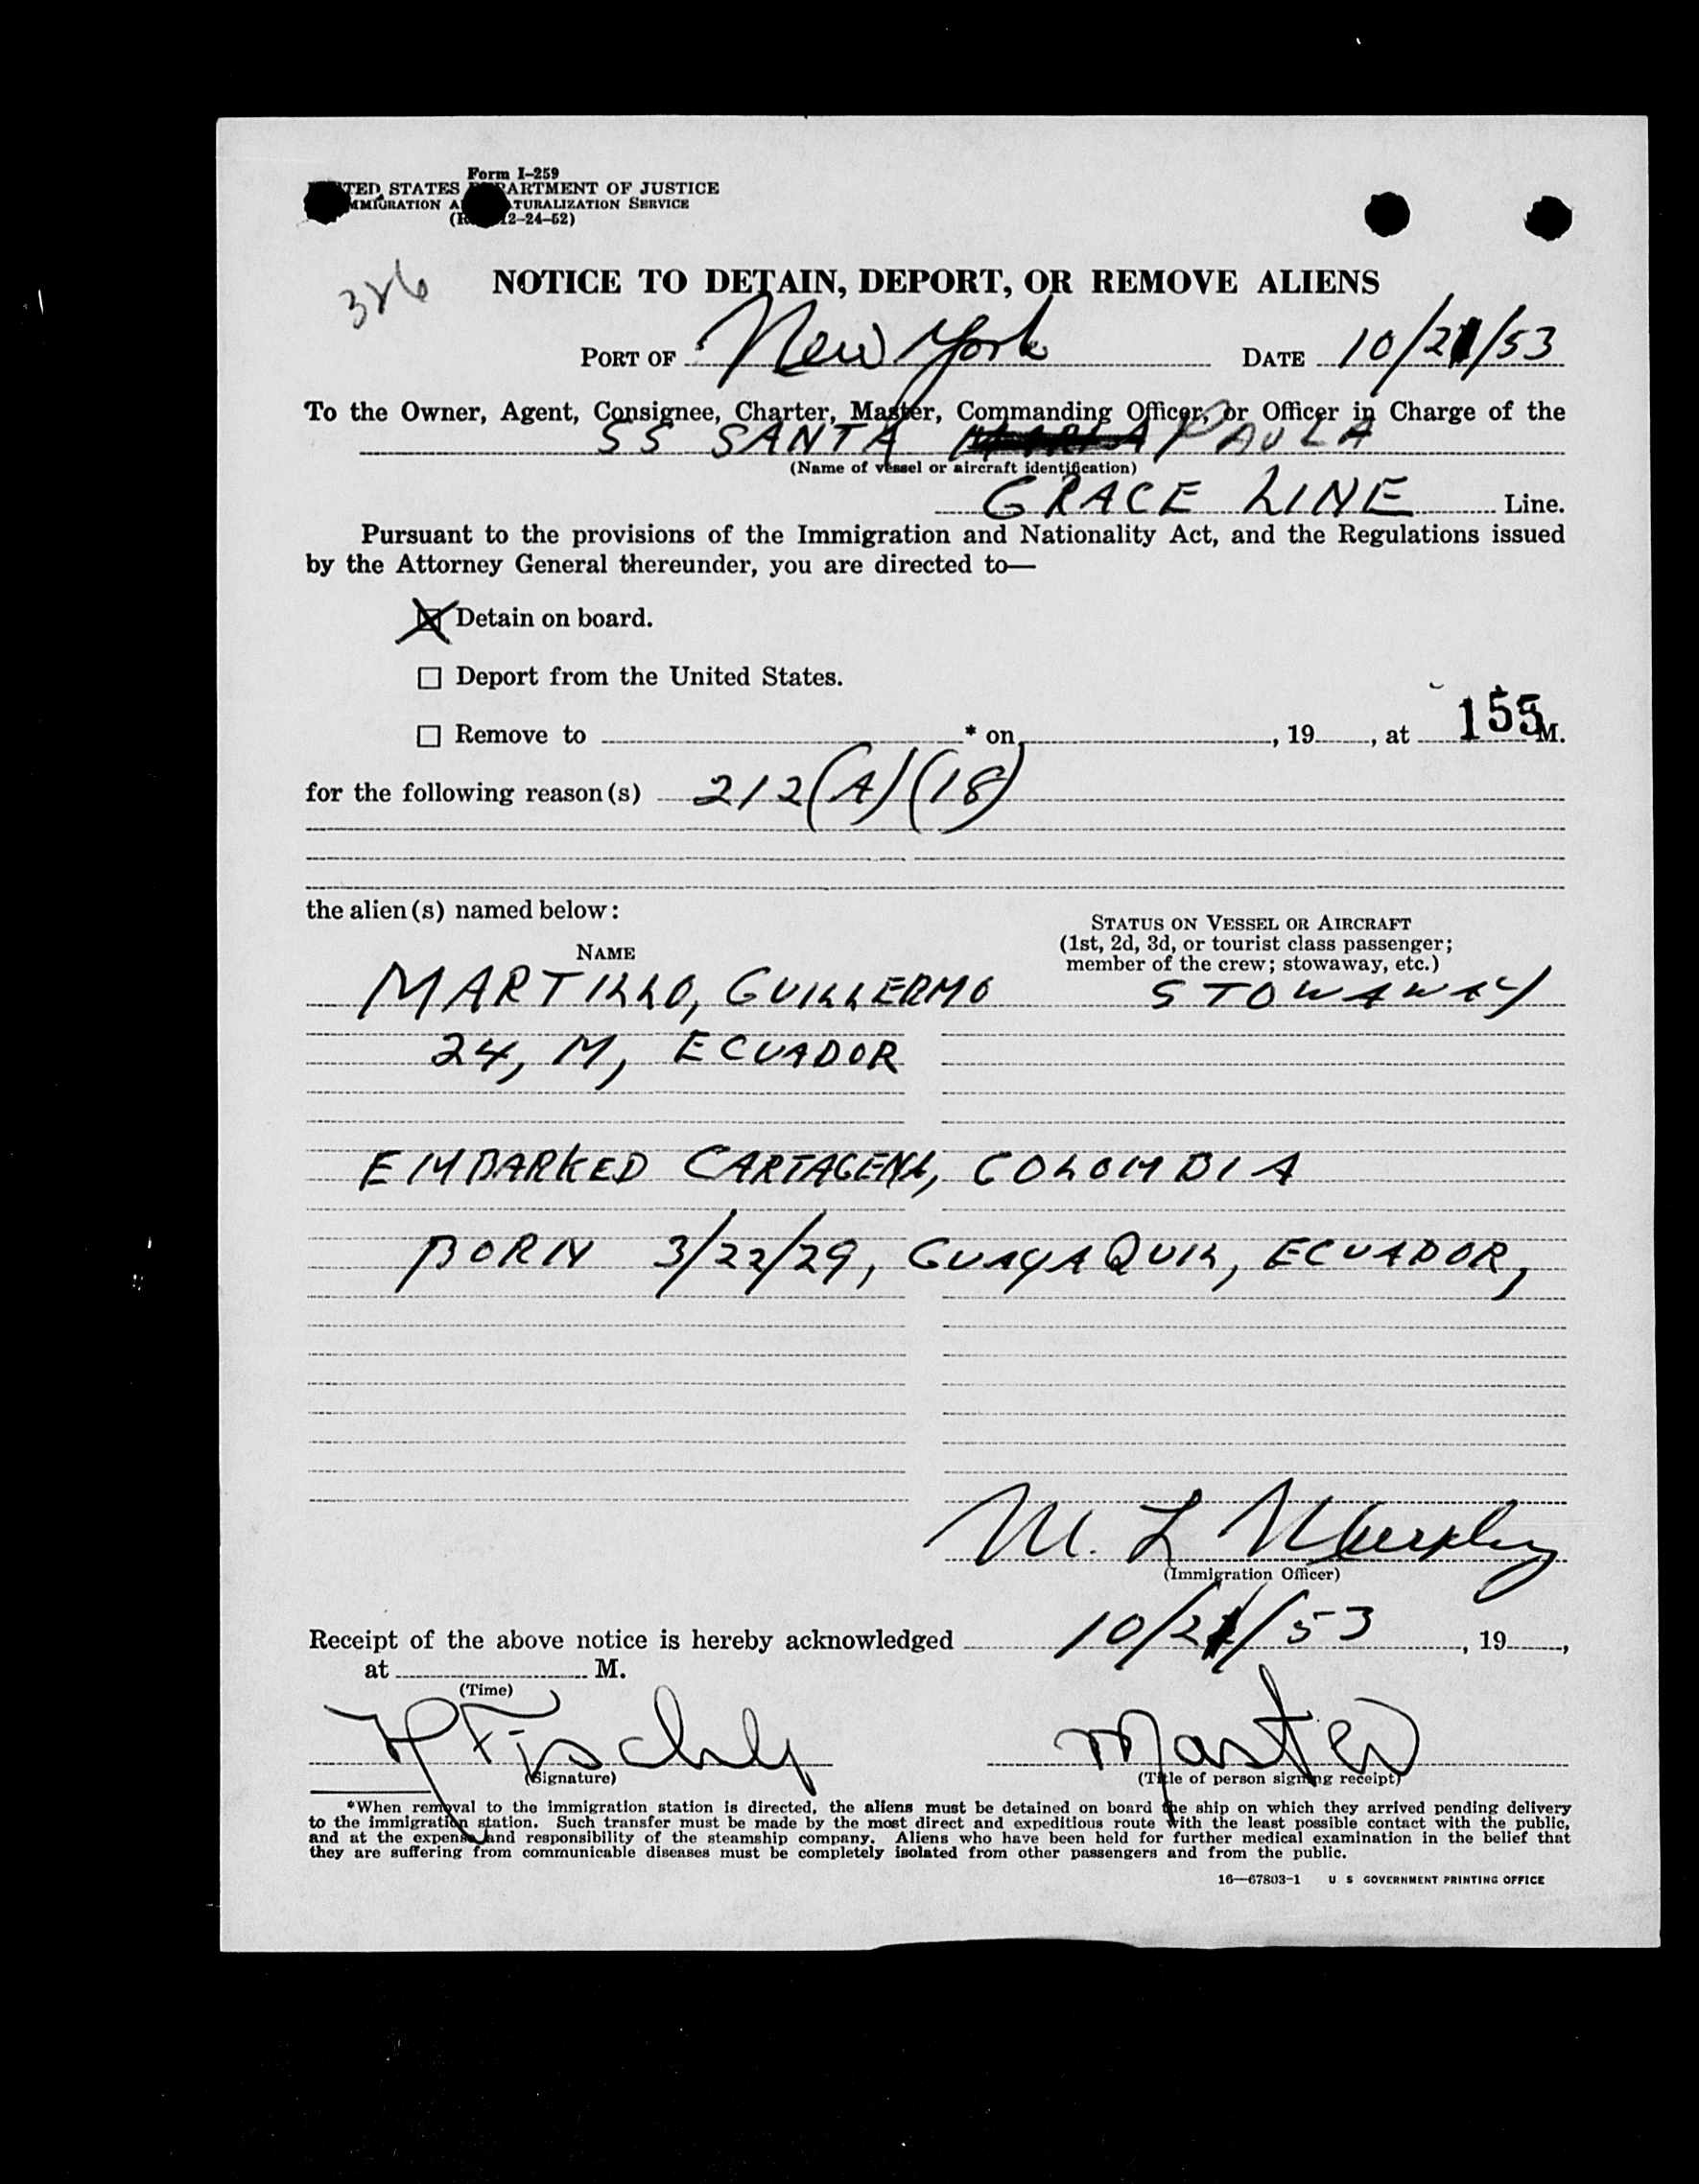 Form I-259
TED STATES PARTMENT OF JUSTICE
MMIGRATION A TURALIZATION SERVICE
(R 12-24-52)
326
NOTICE TO DETAIN, DEPORT, OR REMOVE ALIENS
PORT OF New York DATE 10/21/53
To the Owner, Agent, Consignee, Charter, Master, Commanding Officer, or Officer in Charge of the
SS SANTA PAULA
(Name of vessel or aircraft identification)
GRACE LINE Line.
Pursuant to the provisions of the Immigration and Nationality Act, and the Regulations issued
by the Attorney General thereunder, you are directed to—
Detain on board.
Deport from the United States.
Remove to * on , 19 , at 155 M.
for the following reason(s) 212(A)(18)
the alien(s) named below:
NAME
STATUS ON VESSEL OR AIRCRAFT
(1st, 2d, 3d, or tourist class passenger;
member of the crew; stowaway, etc.)
MARTILLO, GUILLERMO STOWAWAY
24, M, ECUADOR
EMBARKED CARTAGENA, COLOMBIA
BORN 3/22/29, GUAYAQUIL, ECUADOR,
M. L Murphy
(Immigration Officer)
Receipt of the above notice is hereby acknowledged 10/21/53 , 19 ,
at M.
(Time)
Master
(Signature) (Title of person signing receipt)
*When removal to the immigration station is directed, the aliens must be detained on board the ship on which they arrived pending delivery
to the immigration station. Such transfer must be made by the most direct and expeditious route with the least possible contact with the public,
and at the expense and responsibility of the steamship company. Aliens who have been held for further medical examination in the belief that
they are suffering from communicable diseases must be completely isolated from other passengers and from the public.
16—67803-1 U S GOVERNMENT PRINTING OFFICE